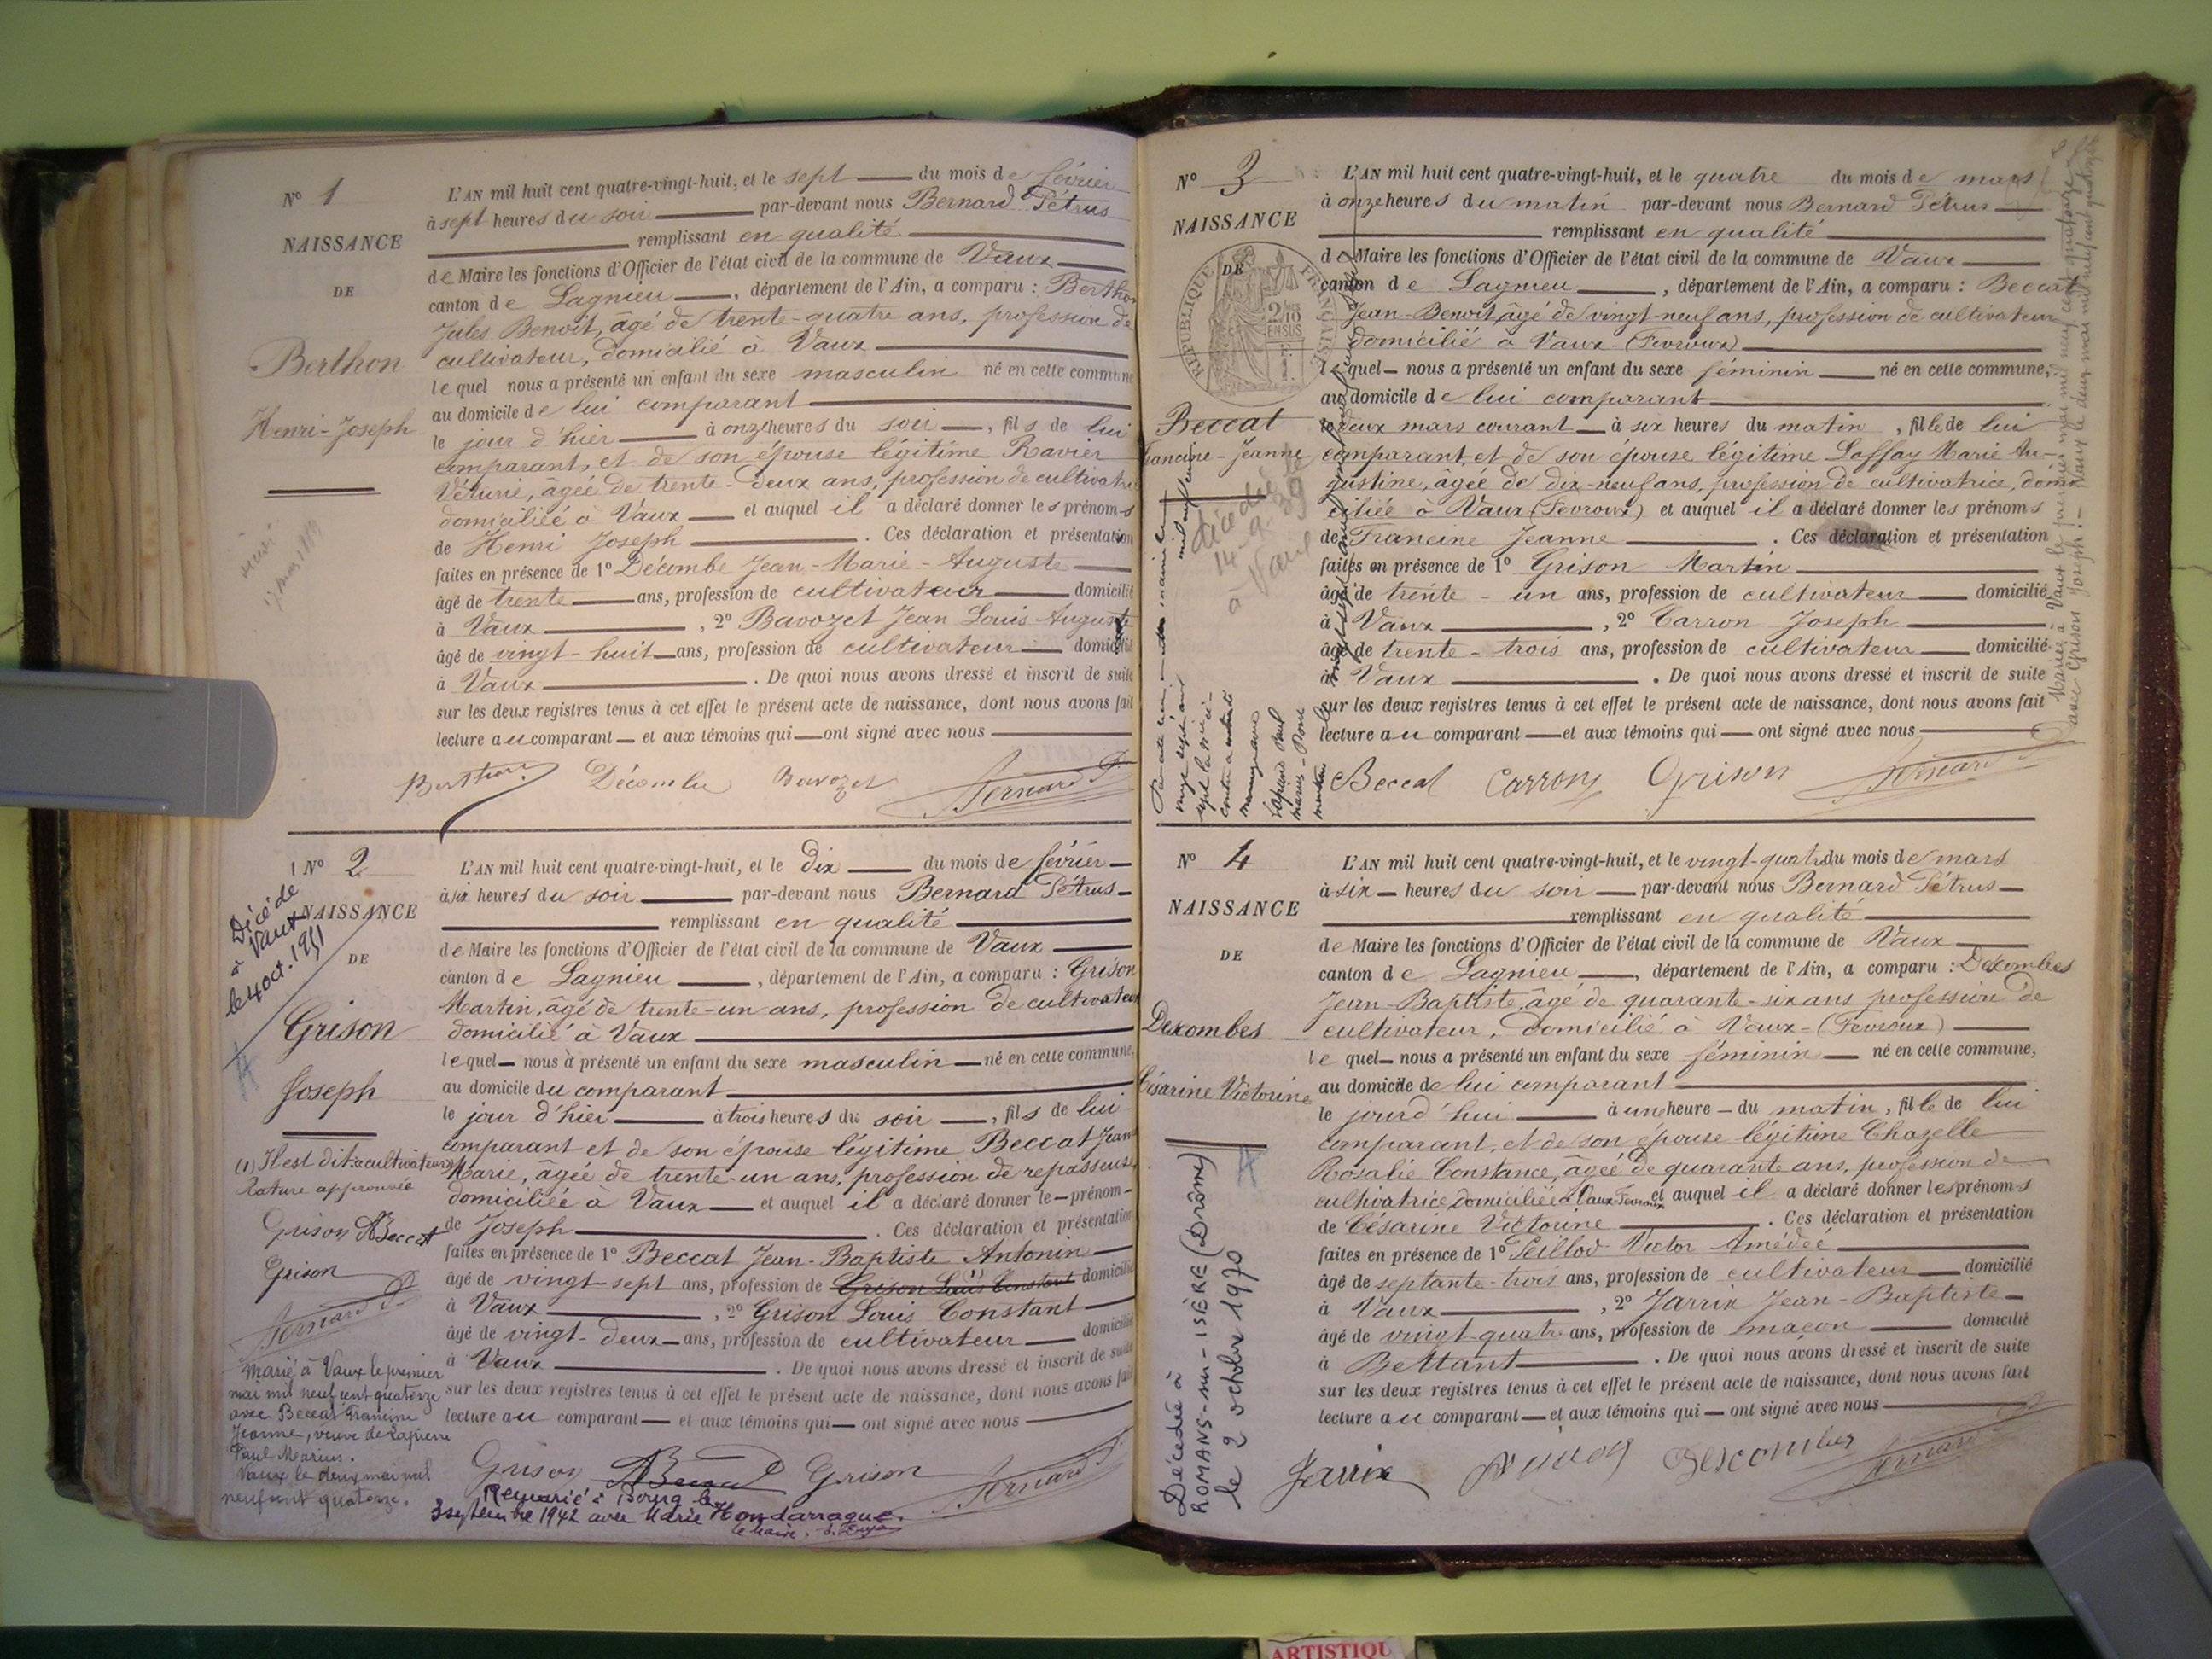 N° 1
NAISSANCE
DE
Berthon
Henri-Joseph
L'AN mil huit cent quatre-vingt-huit, et le sept du mois de février
à sept heures du soir par-devant nous Bernard Pétrus
remplissant en qualité
de Maire les fonctions d'Officier de l'état civil de la commune de Vaux
canton de Lagnieu, département de l'Ain, a comparu : Berthon
Jules Benoît, âgé de trente-quatre ans, profession de
cultivateur, domicilié à Vaux
lequel nous a présenté un enfant du sexe masculin né en cette commune
au domicile de lui comparant
le jour d'hier à onze heures du soir, fils de lui
comparant, et de son épouse légitime Ravier
Véturie, âgée de trente-deux ans, profession de cultivatrice
domiciliée à Vaux et auquel il a déclaré donner les prénoms
de Henri Joseph. Ces déclaration et présentation
faites en présence de 1° Décombe Jean-Marie-Auguste
âgé de trente ans, profession de cultivateur domicilié
à Vaux, 2° Bavozet Jean Louis Auguste
âgé de vingt-huit ans, profession de cultivateur domicilié
à Vaux. De quoi nous avons dressé et inscrit de suite
sur les deux registres tenus à cet effet le présent acte de naissance, dont nous avons fait
lecture au comparant et aux témoins qui ont signé avec nous
Berthon Décombe Bavozet Bernard P.
N° 2
NAISSANCE
DE
Décédé
à Vaux
le 4 oct. 1951
Grison
Joseph
(1) Il est dit: «cultivateur»
Rature approuvée
Grison ABeccat
Grison
Bernard P.
Marié à Vaux le premier
mai mil neuf cent quatorze
avec Beccat Francine
Jeanne, veuve de Lapierre
Paul Marius.
Vaux le deux mai mil
neuf cent quatorze.
L'AN mil huit cent quatre-vingt-huit, et le dix du mois de février
à six heures du soir par-devant nous Bernard Pétrus
remplissant en qualité
de Maire les fonctions d'Officier de l'état civil de la commune de Vaux
canton de Lagnieu, département de l'Ain, a comparu : Grison
Martin, âgé de trente-un ans, profession de cultivateur
domicilié à Vaux
lequel nous a présenté un enfant du sexe masculin né en cette commune,
au domicile du comparant
le jour d'hier à trois heures du soir, fils de lui
comparant et de son épouse légitime Beccat Jeanne
Marie, âgée de trente-un ans, profession de repasseuse
domiciliée à Vaux et auquel il a déclaré donner le prénom
de Joseph. Ces déclaration et présentation
faites en présence de 1° Beccat Jean-Baptiste Antonin
âgé de vingt-sept ans, profession de Grison Louis Constant (1) domicilié
à Vaux, 2° Grison Louis Constant
âgé de vingt-deux ans, profession de cultivateur domicilié
à Vaux. De quoi nous avons dressé et inscrit de suite
sur les deux registres tenus à cet effet le présent acte de naissance, dont nous avons fait
lecture au comparant et aux témoins qui ont signé avec nous
Grison ABeccat Grison Bernard P.
Remarié à Bourg le
3 septembre 1942 avec Marie Hondarrague.
le Maire,
N° 3
NAISSANCE
DE
RÉPUBLIQUE FRANÇAISE
2/10 EN SUS
Beccat
Francine-Jeanne
décédée le
14-9-39
à Vaux
L'AN mil huit cent quatre-vingt-huit, et le quatre du mois de mars
à onze heures du matin par-devant nous Bernard Pétrus
remplissant en qualité
de Maire les fonctions d'Officier de l'état civil de la commune de Vaux
canton de Lagnieu, département de l'Ain, a comparu : Beccat
Jean-Benoît, âgé de vingt-neuf ans, profession de cultivateur
domicilié à Vaux-(Fevroux)
lequel nous a présenté un enfant du sexe féminin né en cette commune,
au domicile de lui comparant
le deux mars courant à six heures du matin, fille de lui
comparant, et de son épouse légitime Laffay Marie Au-
gustine, âgée de dix-neuf ans, profession de cultivatrice, domi-
ciliée à Vaux (Fevroux) et auquel il a déclaré donner les prénoms
de Francine Jeanne. Ces déclaration et présentation
faites en présence de 1° Grison Martin
âgé de trente-un ans, profession de cultivateur domicilié
à Vaux, 2° Carron Joseph
âgé de trente-trois ans, profession de cultivateur domicilié
à Vaux. De quoi nous avons dressé et inscrit de suite
sur les deux registres tenus à cet effet le présent acte de naissance, dont nous avons fait
lecture au comparant et aux témoins qui ont signé avec nous
Beccat Carron J Grison Bernard P.
Mariée à Vaux le premier mai mil neuf cent quatorze
avec Grison Joseph. - Vaux le deux mai mil neuf cent quatorze
N° 4
NAISSANCE
DE
Descombes
Césarine Victorine
Décédée à
ROMANS-sur-ISÈRE (Drôme)
le 2 octobre 1970
L'AN mil huit cent quatre-vingt-huit, et le vingt-quatre du mois de mars
à six heures du soir par-devant nous Bernard Pétrus
remplissant en qualité
de Maire les fonctions d'Officier de l'état civil de la commune de Vaux
canton de Lagnieu, département de l'Ain, a comparu : Descombes
Jean-Baptiste, âgé de quarante-six ans profession de
cultivateur, domicilié à Vaux-(Fevroux)
lequel nous a présenté un enfant du sexe féminin né en cette commune,
au domicile de lui comparant
le jourd'hui à une heure du matin, fille de lui
comparant, et de son épouse légitime Chazelle
Rosalie Constance, âgée de quarante ans, profession de
cultivatrice, domiciliée à Vaux-Fevroux et auquel il a déclaré donner les prénoms
de Césarine Victorine. Ces déclaration et présentation
faites en présence de 1° Peillod Victor Amédée
âgé de septante-trois ans, profession de cultivateur domicilié
à Vaux, 2° Jarrin Jean-Baptiste
âgé de vingt-quatre ans, profession de maçon domicilié
à Bettant. De quoi nous avons dressé et inscrit de suite
sur les deux registres tenus à cet effet le présent acte de naissance, dont nous avons fait
lecture au comparant et aux témoins qui ont signé avec nous
Jarrin Descombes Bernard P.
ARTISTIQU